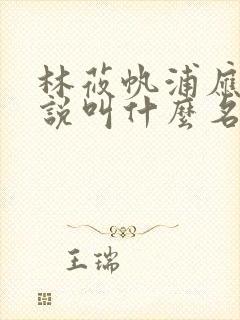 林莜帆浦應
說叫什麼名
王瑞